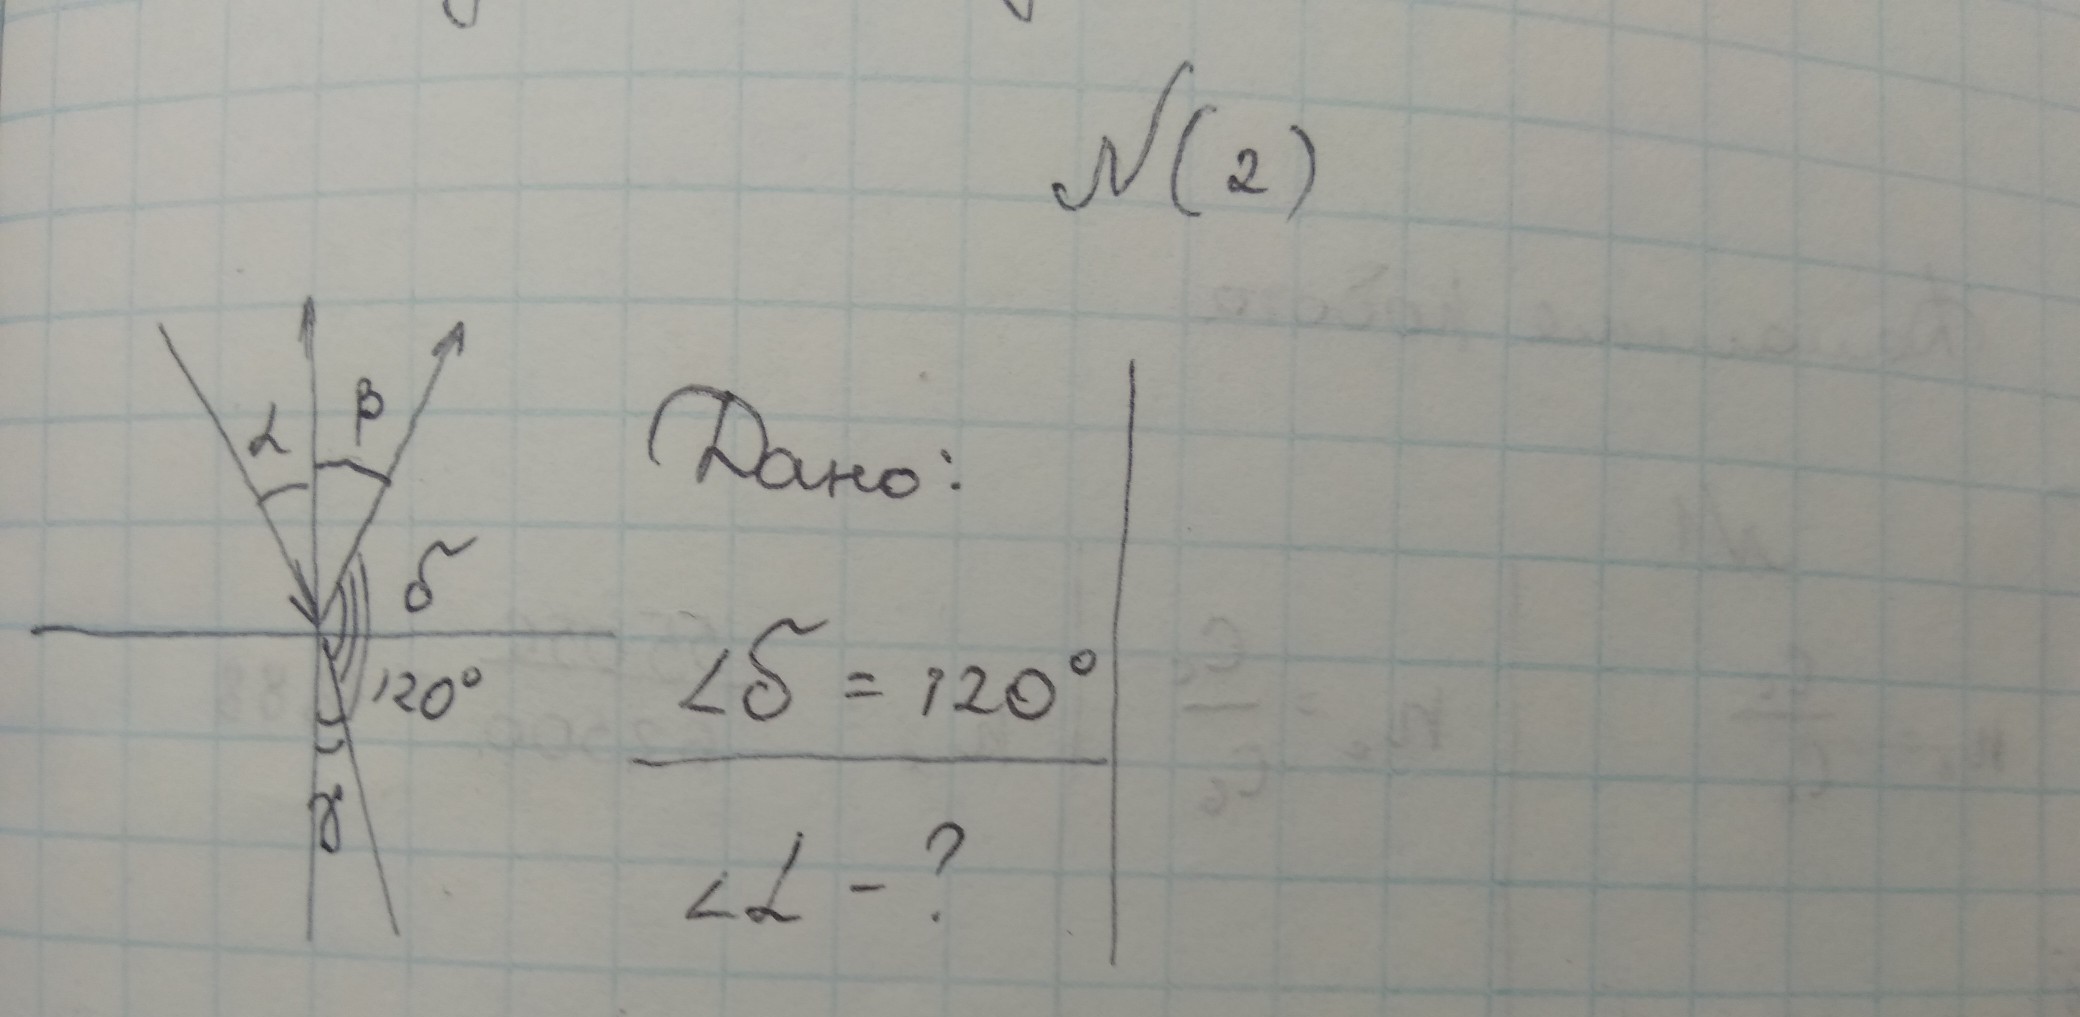 №(2)
α
β
δ
120°
γ
Дано:
∠δ = 120°
∠α - ?